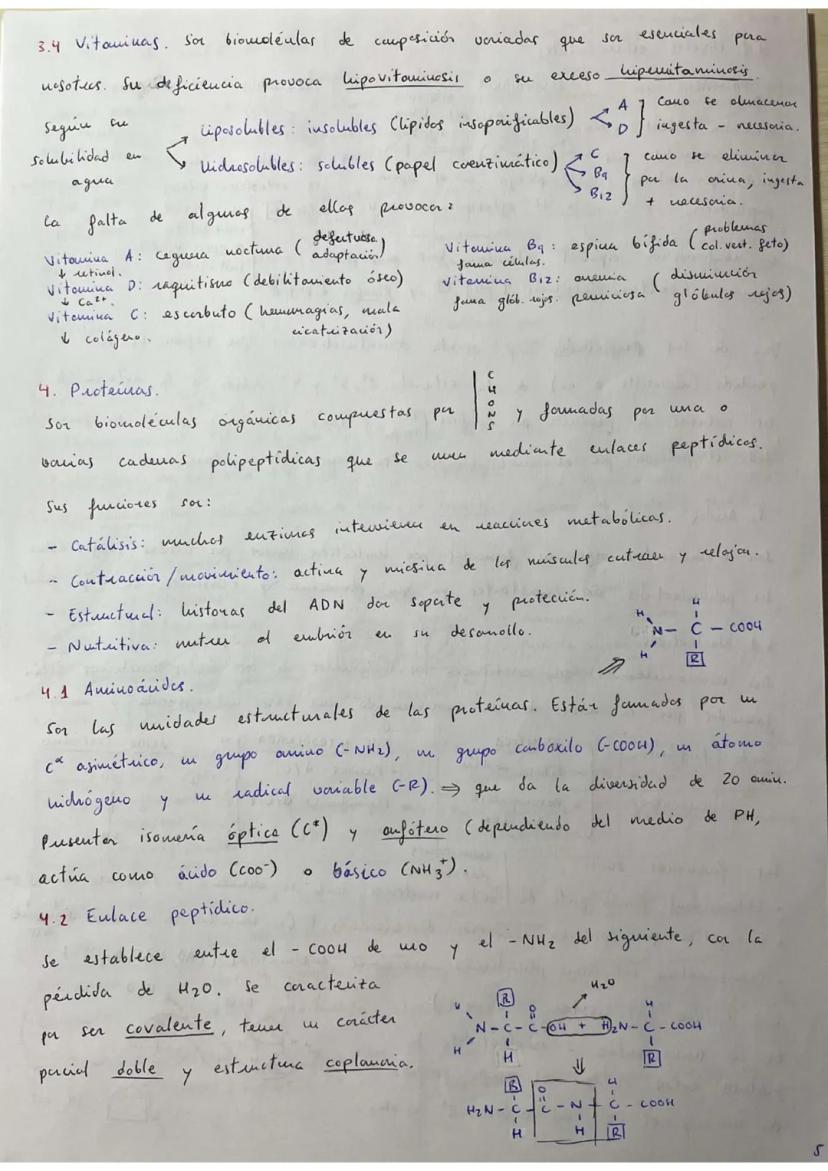 3.4 Vitaminas. Son biomoléculas de composición variadas que son esenciales para
nosotros. Su deficiencia provoca hipovitaminosis o su exceso hipervitaminosis.
Según su
solubilidad en
agua
Liposolubles: insolubles (lípidos insaponificables)
A
D
Como se almacenan
ingesta - necesaria.
Hidrosolubles: solubles (papel coenzimático)
C
B9
B12
como se eliminan
por la orina, ingesta
+ necesaria.
La falta de algunas de ellas provocan:
Vitamina A: ceguera nocturna (defectuosa adaptación)
↓ retinol.
Vitamina D: raquitismo (debilitamiento óseo)
↓ Ca2+.
Vitamina C: escorbuto (hemorragias, mala
cicatrización)
↓ colágeno.
Vitamina B9: espina bífida (problemas col. vert. feto)
forma células.
Vitamina B12: anemia
forma glób. rojos. perniciosa
(disminución
glóbulos rojos)
4. Proteínas.
Son biomoléculas orgánicas compuestas por C H O N S y formadas por una o
varias cadenas polipeptídicas que se unen mediante enlaces peptídicos.
Sus funciones son:
- Catálisis: muchas enzimas intervienen en reacciones metabólicas.
- Contracción/movimiento: actina y miosina de los músculos contraen y relajan.
- Estructural: histonas del ADN dan soporte y protección.
- Nutritiva: nutren al embrión en su desarrollo.
H
H
N - C - COOH
H
R
4.1 Aminoácidos.
Son las unidades estructurales de las proteínas. Están formados por un
Cα asimétrico, un grupo amino (-NH2), un grupo carboxilo (-COOH), un átomo
hidrógeno y un radical variable (-R). ⇒ que da la diversidad de 20 amin.
Presentan isomería óptica (C*) y anfótero (dependiendo del medio de PH,
actúa como ácido (COO-) o básico (NH3+).
4.2 Enlace peptídico.
Se establece entre el -COOH de uno y el -NH2 del siguiente, con la
pérdida de H2O. Se caracteriza
por ser covalente, tener un carácter
parcial doble y estructura coplanaria.
H2O
R O H
H
N - C - C - OH + H2N - C - COOH
H
H R
⇓
R O H
H2N - C - C - N - C - COOH
H H R
5